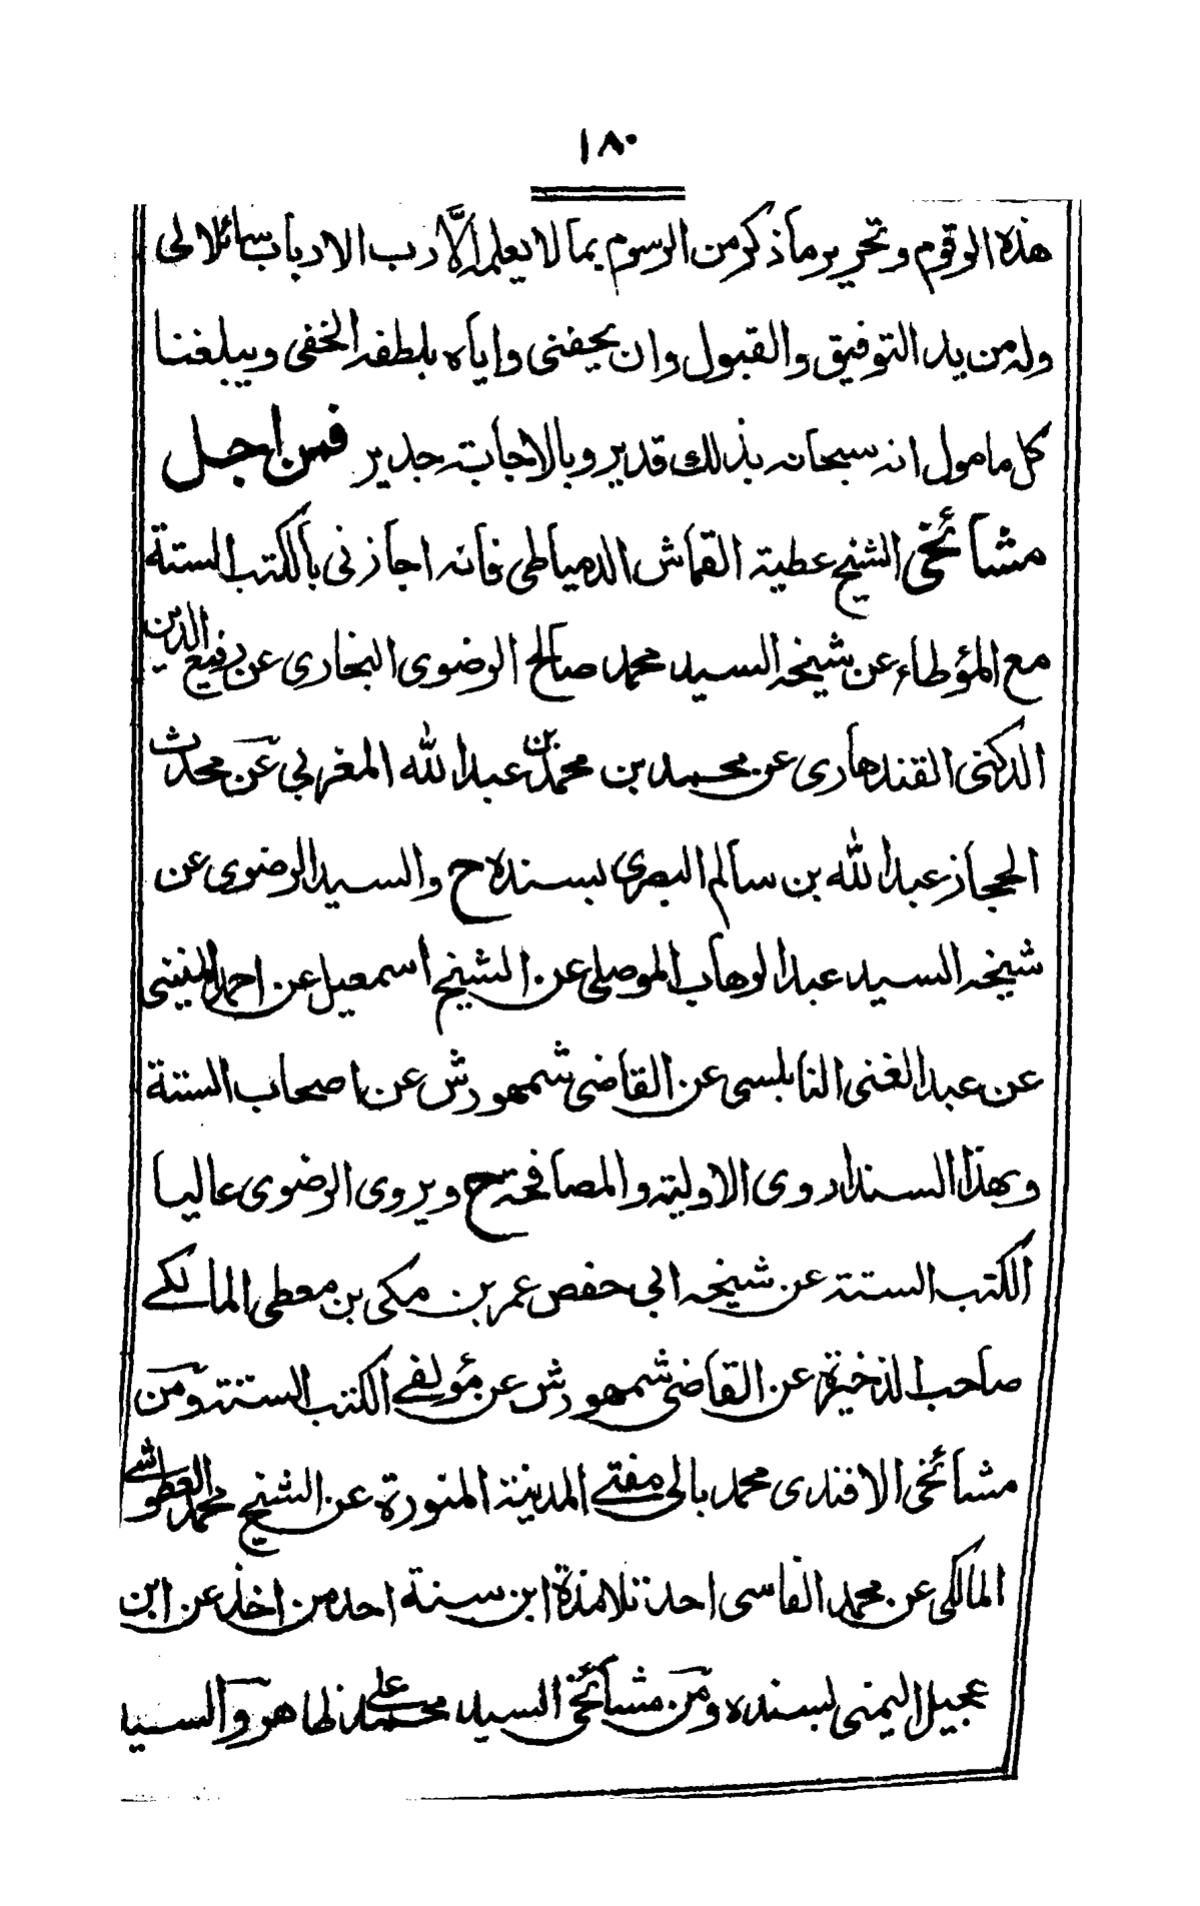 ١٨٠
هذه الوقوم وتحرير ما ذكر من الرسوم بما لا يعلمه الّا رب الارباب سائلا لى
وله من يد التوفيق والقبول وان يحفنى واياه بلطفه الخفى ويبلغنا
كل مامول انه سبحانه بذلك قدير وبالاجابة جدير فمن اجل
مشائخى الشيخ عطية القماش الدمياطى فانه اجازنى بالكتب الستة
مع المؤطاء عن شيخه السيد محمد صالح الرضوى البخارى عن رفيع الدين
الدكنى القندهارى عن محمد بن محمد بن عبد الله المغربي عن محدث
الحجاز عبد الله بن سالم البصرى بسنده ح والسيد الرضوى عن
شيخه السيد عبد الوهاب الموصلى عن الشيخ اسمعيل عن احمد المنينى
عن عبد الغنى النابلسى عن القاضى شمهورش عن اصحاب الستة
وبهذا السند اروى الاولية والمصافحة ح ويروى الرضوى عاليا
الكتب الستة عن شيخه ابي حفص عمر بن مكى بن معطى المالكے
صاحب الذخيرة عن القاضى شمهورش عن مؤلفے الكتب الستة ومن
مشائخى الافندى محمد بالى مفتے المدينة المنورة عن الشيخ محمد العطوشے
المالكى عن محمد الفاسى احد تلامذة ابن سنة احد من اخذ عن ابن
عجيل اليمنى بسنده ومن مشائخى السيد محمد على ظاهر والسيد